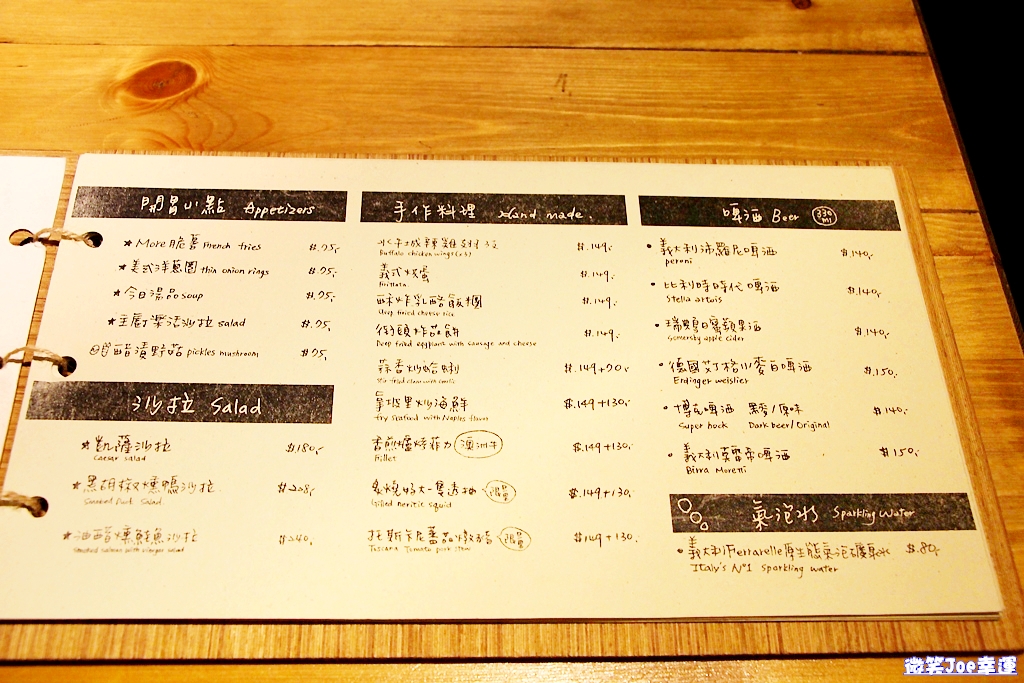 開胃小點 Appetizers
★ More脆薯 French fries $.95.-
★ 美式洋蔥圈 thin onion rings $.95.-
★ 今日湯品 soup $.95.-
★ 主廚樂活沙拉 salad $.95.-
醋漬野菇 pickles mushroom $.95.-
沙拉 Salad
★ 凱薩沙拉 $180.-
Caesar salad
★ 黑胡椒燻鴨沙拉
Smoked Duck Salad
★ 油醋燻鮭魚沙拉 $240.-
Smoked salmon with vinegar salad
手作料理 Hand made.
水牛城辣雞翅 $.149.-
Buffalo chicken wings
義式烘蛋 $.149.-
Frittata
酥炸乳酪飯糰 $.149.-
Deep fried cheese rice
街頭炸茄餅 $.149.-
Deep fried eggplant with sausage and cheese
蒜香炒蛤蜊 $.149+90.-
Stir-fried clam with garlic
拿坡里炒海鮮 $.149+130.-
fry Seafood with Naples flavor
香煎爐烤菲力 澳洲牛 $.149+130.-
Fillet
炙燒好大一隻透抽 限量 $.149+130.-
Grilled neritic squid
托斯卡尼蕃茄燉豬 限量 $149+130.-
Tuscana Tomato pork stew
啤酒 Beer 330 ml
• 義大利沛羅尼啤酒 $.140.-
peroni
• 比利時時代啤酒 $.140.-
Stella artois
• 瑞典夏日蘋果酒 $.140.-
Somersby apple cider
• 德國艾丁格小麥白啤酒 $.150.-
Erdinger weisbier
• 博克啤酒 黑麥/原味 $140.-
Super bock Dark beer/Original
• 義大利莫雷帝啤酒 $150.-
Birra Moretti
氣泡水 Sparkling Water
• 義大利Ferrarelle原生態氣泡礦泉水 $.80.-
Italy's N°1 Sparkling water
微笑Joe幸運